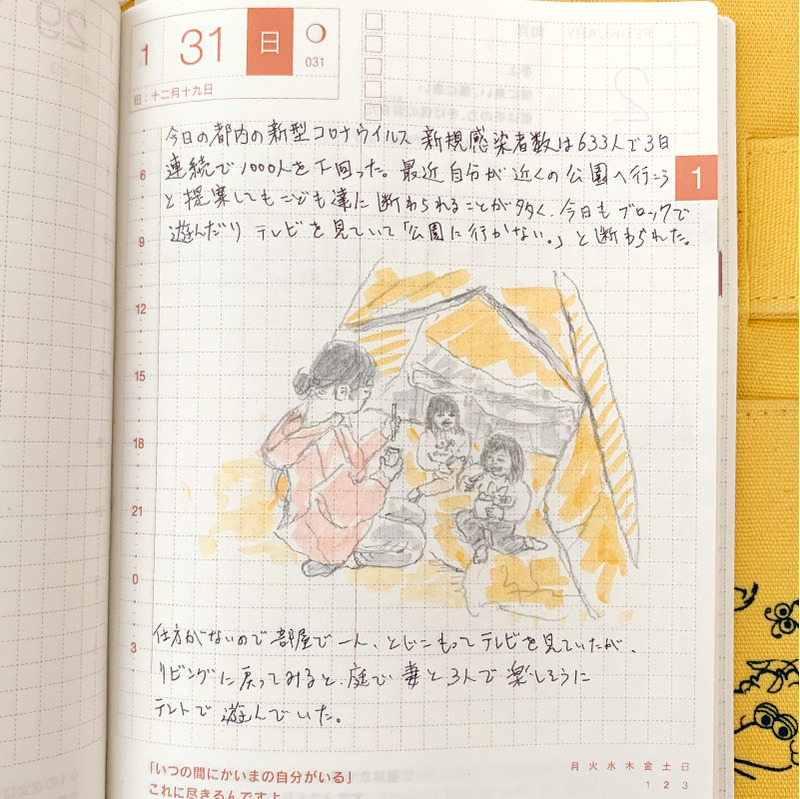 29
1 31 日
031
旧:十二月十九日
今日の都内の新型コロナウイルス 新規感染者数は633人で3日
連続で1000人を下回った。最近自分が近くの公園へ行こう
と提案してもこども達に断わられることが多く、今日もブロックで
遊んだり テレビを見ていて「公園に行かない。」と断わられた。
1
6
9
12
15
18
21
0
3
仕方がないので部屋で一人、とじこもってテレビを見ていたが、
リビングに戻ってみると、庭で妻と3人で楽しそうに
テントで遊んでいた。
「いつの間にかいまの自分がいる」
これに尽きるんですよ
月 火 水 木 金 土 日
1 2 3